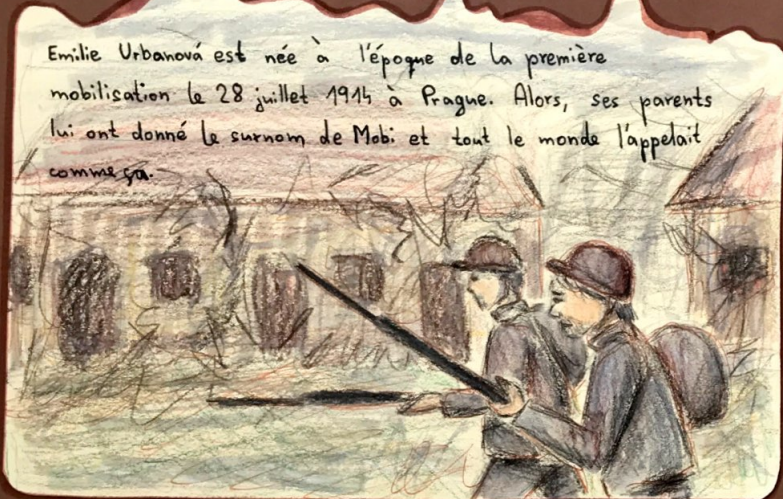 Emilie Urbanová est née à l'époque de la première
mobilisation le 28 juillet 1914 à Prague. Alors, ses parents
lui ont donné le surnom de Mobi et tout le monde l'appelait
comme ça.